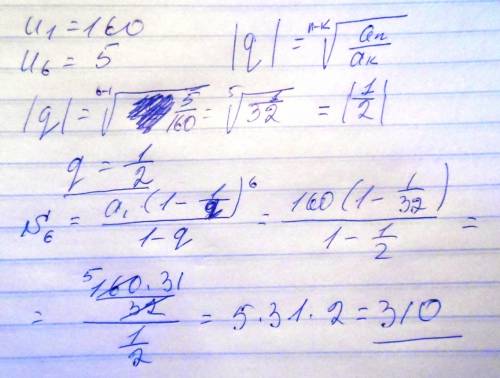 u₁ = 160
u₆ = 5 |q| = ⁿ⁻ᵏ√(aₙ/aₖ)
|q| = ⁶⁻¹√(5/160) = ⁵√(1/32) = |1/2|
q = 1/2
S₆ = a₁(1 - 1/q)⁶/(1 - q) = 160(1 - 1/32)/(1 - 1/2) =
= (⁵160·31/32)/(1/2) = 5·31·2 = 310